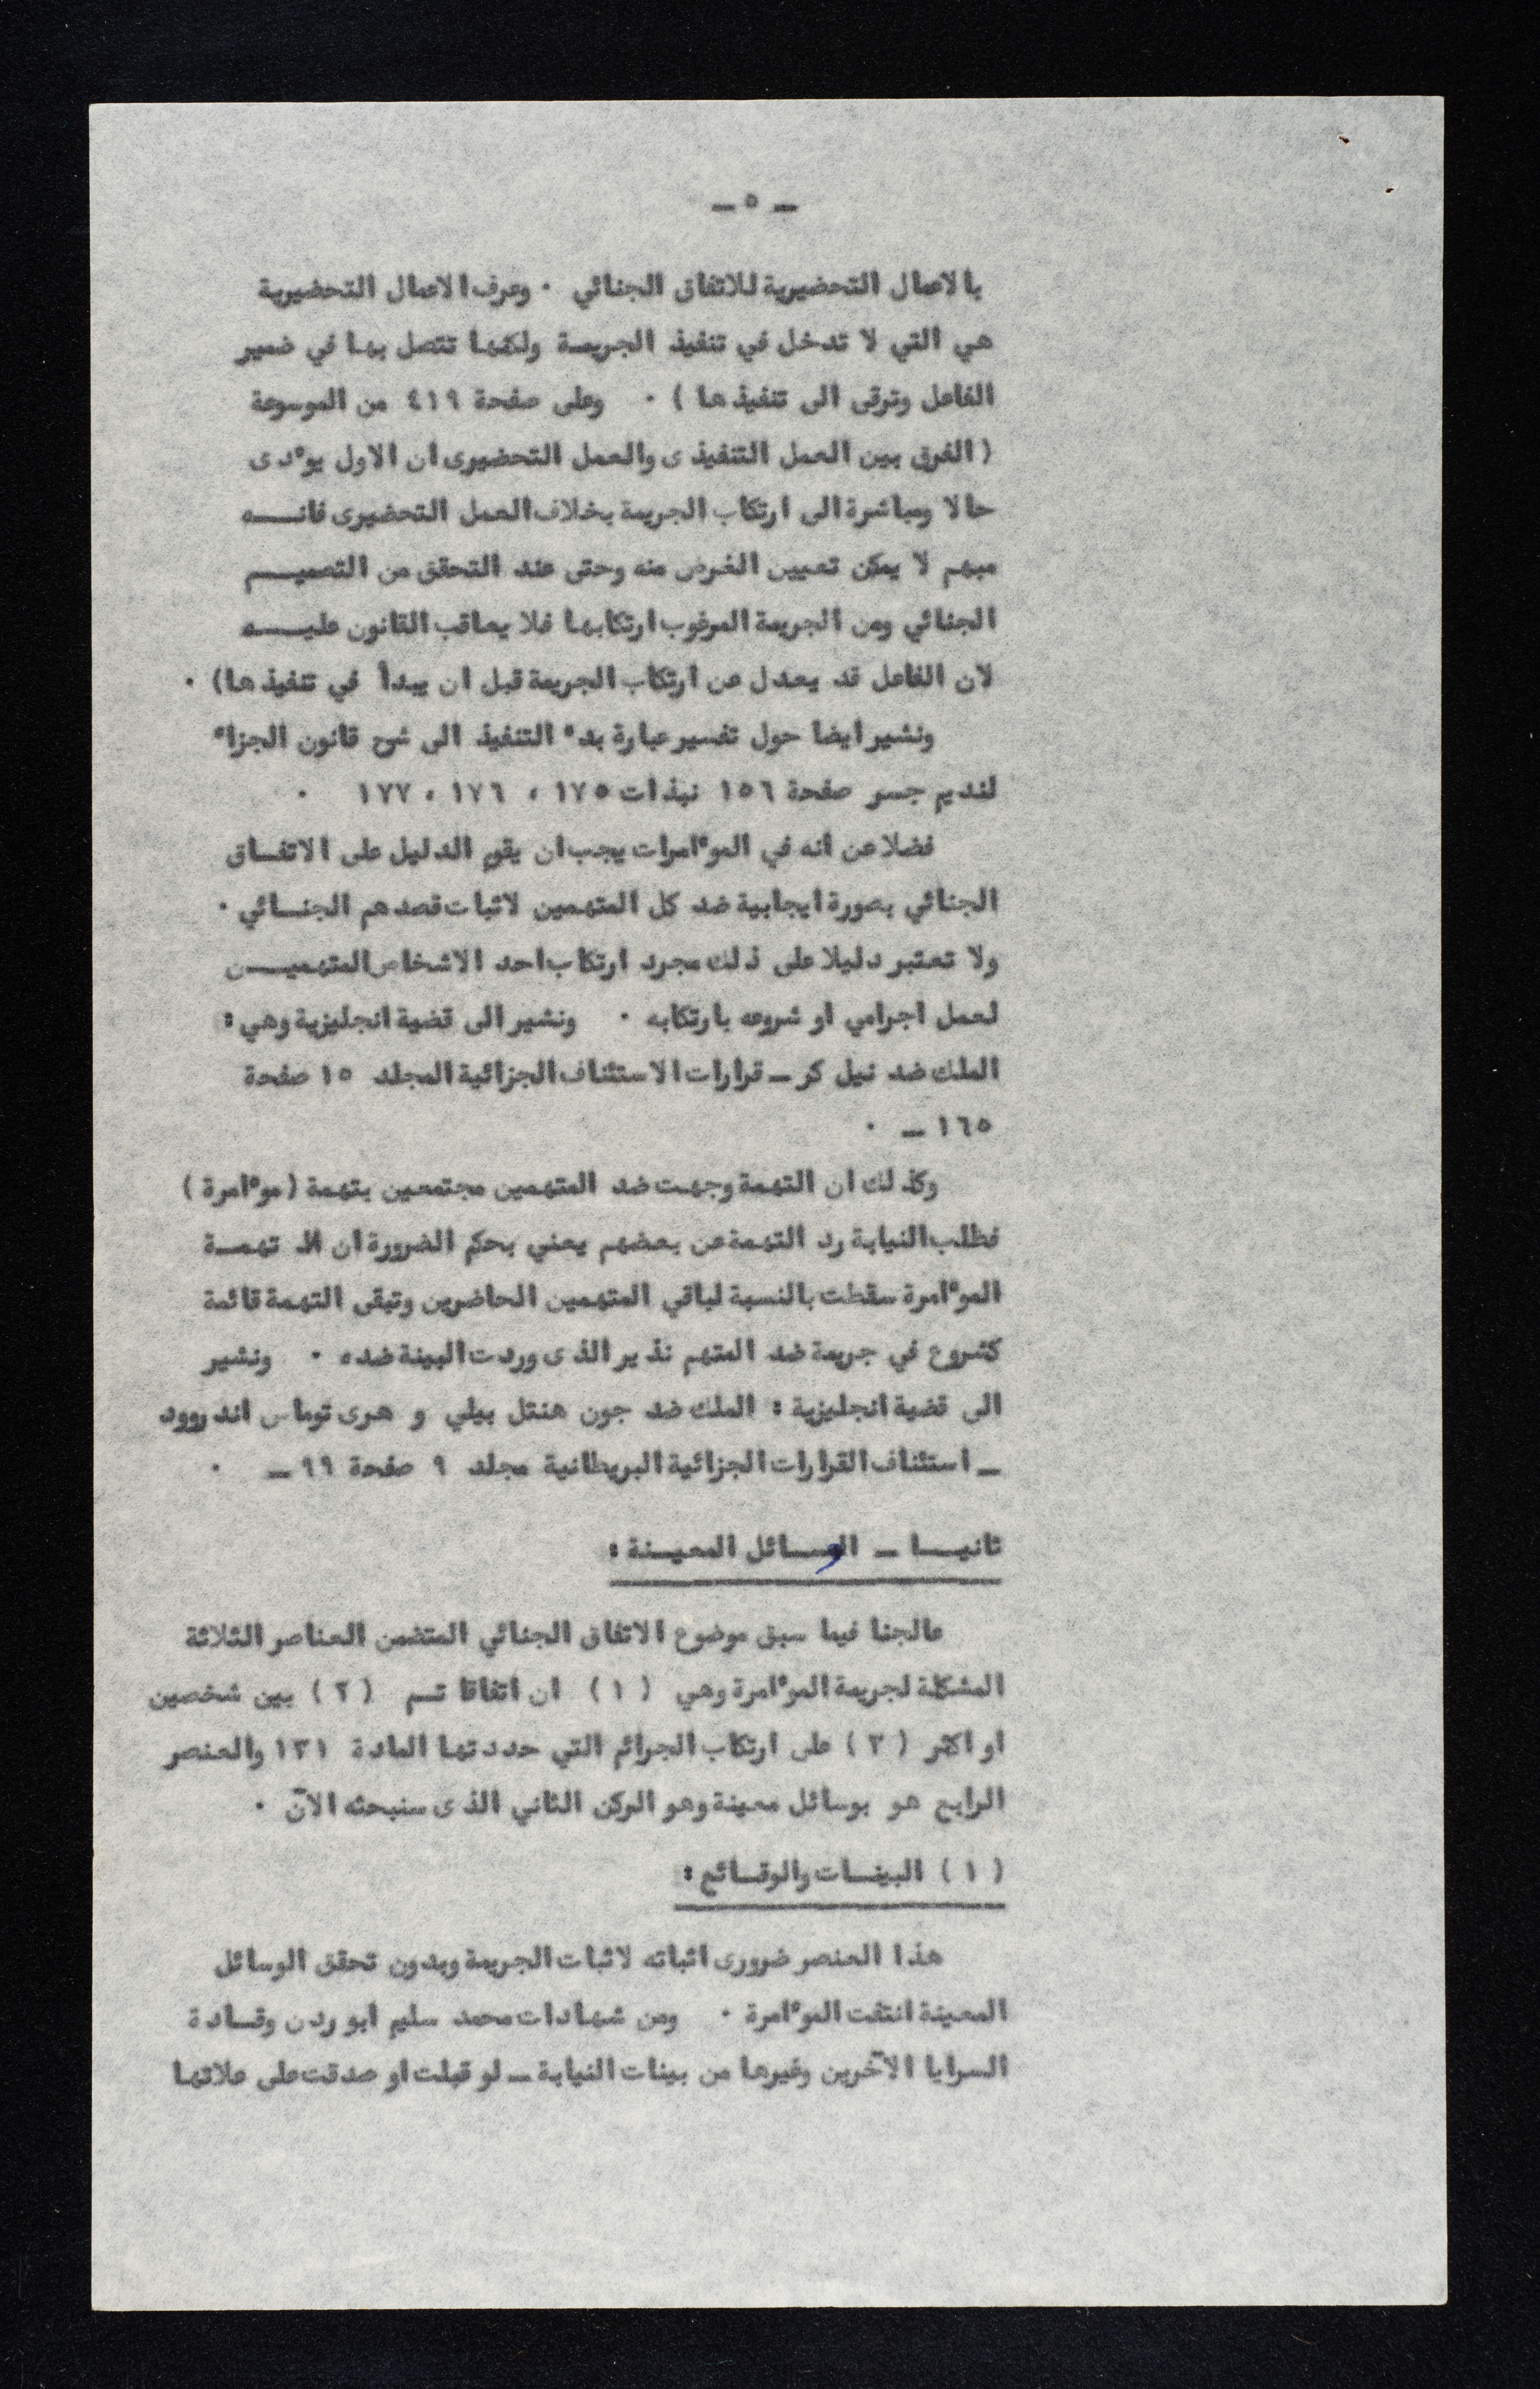 — ٥ —
بالاعمال التحضيرية للاتفاق الجنائي ٠ وعرف الاعمال التحضيرية
هي التي لا تدخل في تنفيذ الجريمـة ولكنهـا تتصل بهـا في ضمير
الفاعل وترقى الى تنفيذها ) ٠ وعلى صفحة ٤١٩ من الموسوعة
( الفرق بين العمل التنفيذى والعمل التحضيرى ان الاول يو'دى
حالا ومباشرة الى ارتكاب الجريمة بخلاف العمل التحضيرى فانــــه
مبهم لا يمكن تعيين الغرض منه وحتى عند التحقق من التصميــــم
الجنائي ومن الجريمة المرغوب ارتكابهـا فلا يعاقب القانون عليــــه
لان الفاعل قد يعدل عن ارتكاب الجريمة قبل ان يبدأ في تنفيذها) ٠
ونشير ايضا حول تفسير عبارة بدء التنفيذ الى شرح قانون الجزاء
لنديم جسر صفحة ١٥٦ نبذات ١٧٥ ، ١٧٦ ، ١٧٧ ٠
فضلا عن انه في المو'امرات يجب ان يقوم الدليل على الاتفـاق
الجنائي بصورة ايجابية ضد كل المتهمين لاثبات قصدهم الجنــائي ٠
ولا تعتبر دليلا على ذلك مجرد ارتكاب احد الاشخاص المتهميــــن
لعمل اجرامي او شروعه بارتكابه ٠ ونشير الى قضية انجليزية وهي :
الملك ضد نيل كر — قرارات الاستئناف الجزائية المجلد ١٥ صفحة
١٦٥ — ٠
وكذلك ان التهمة وجهت ضد المتهمين مجتمعين بتهمة ( مو'امرة )
فطلب النيابة رد التهمة عن بعضهم يعني بحكم الضرورة ان تهمــة
المو'امرة سقطت بالنسبة لباقي المتهمين الحاضرين وتبقى التهمة قائمة
كشروع في جريمة ضد المتهم نذير الذى وردت البينة ضده ٠ ونشير
الى قضية انجليزية : الملك ضد جون هنتل بيلي و هرى توماس اندروود
— استئناف القرارات الجزائية البريطانية مجلد ٩ صفحة ٩٩ — ٠
ثانيــــا — الوســــائل المعيــنة :
عالجنا فيما سبق موضوع الاتفاق الجنائي المتضمن العناصر الثلاثة
المشكلة لجريمة المو'امرة وهي ( ١ ) ان اتفاقا تــم ( ٢ ) بين شخصين
او اكثر ( ٣ ) على ارتكاب الجرائم التي حددتها المادة ١٣١ والعنصر
الرابع هو بوسائل معينة وهو الركن الثاني الذى سنبحثه الآن ٠
( ١ ) البينــات والوقــائع :
هذا العنصر ضرورى اثباته لاثبات الجريمة وبدون تحقق الوسائل
المعينة انتفت المو'امرة ٠ ومن شهادات محمد سليم ابو ردن وقــادة
السرايا الآخرين وغيرها من بينات النيابة — لو قبلت او صدقت على علاتهـا